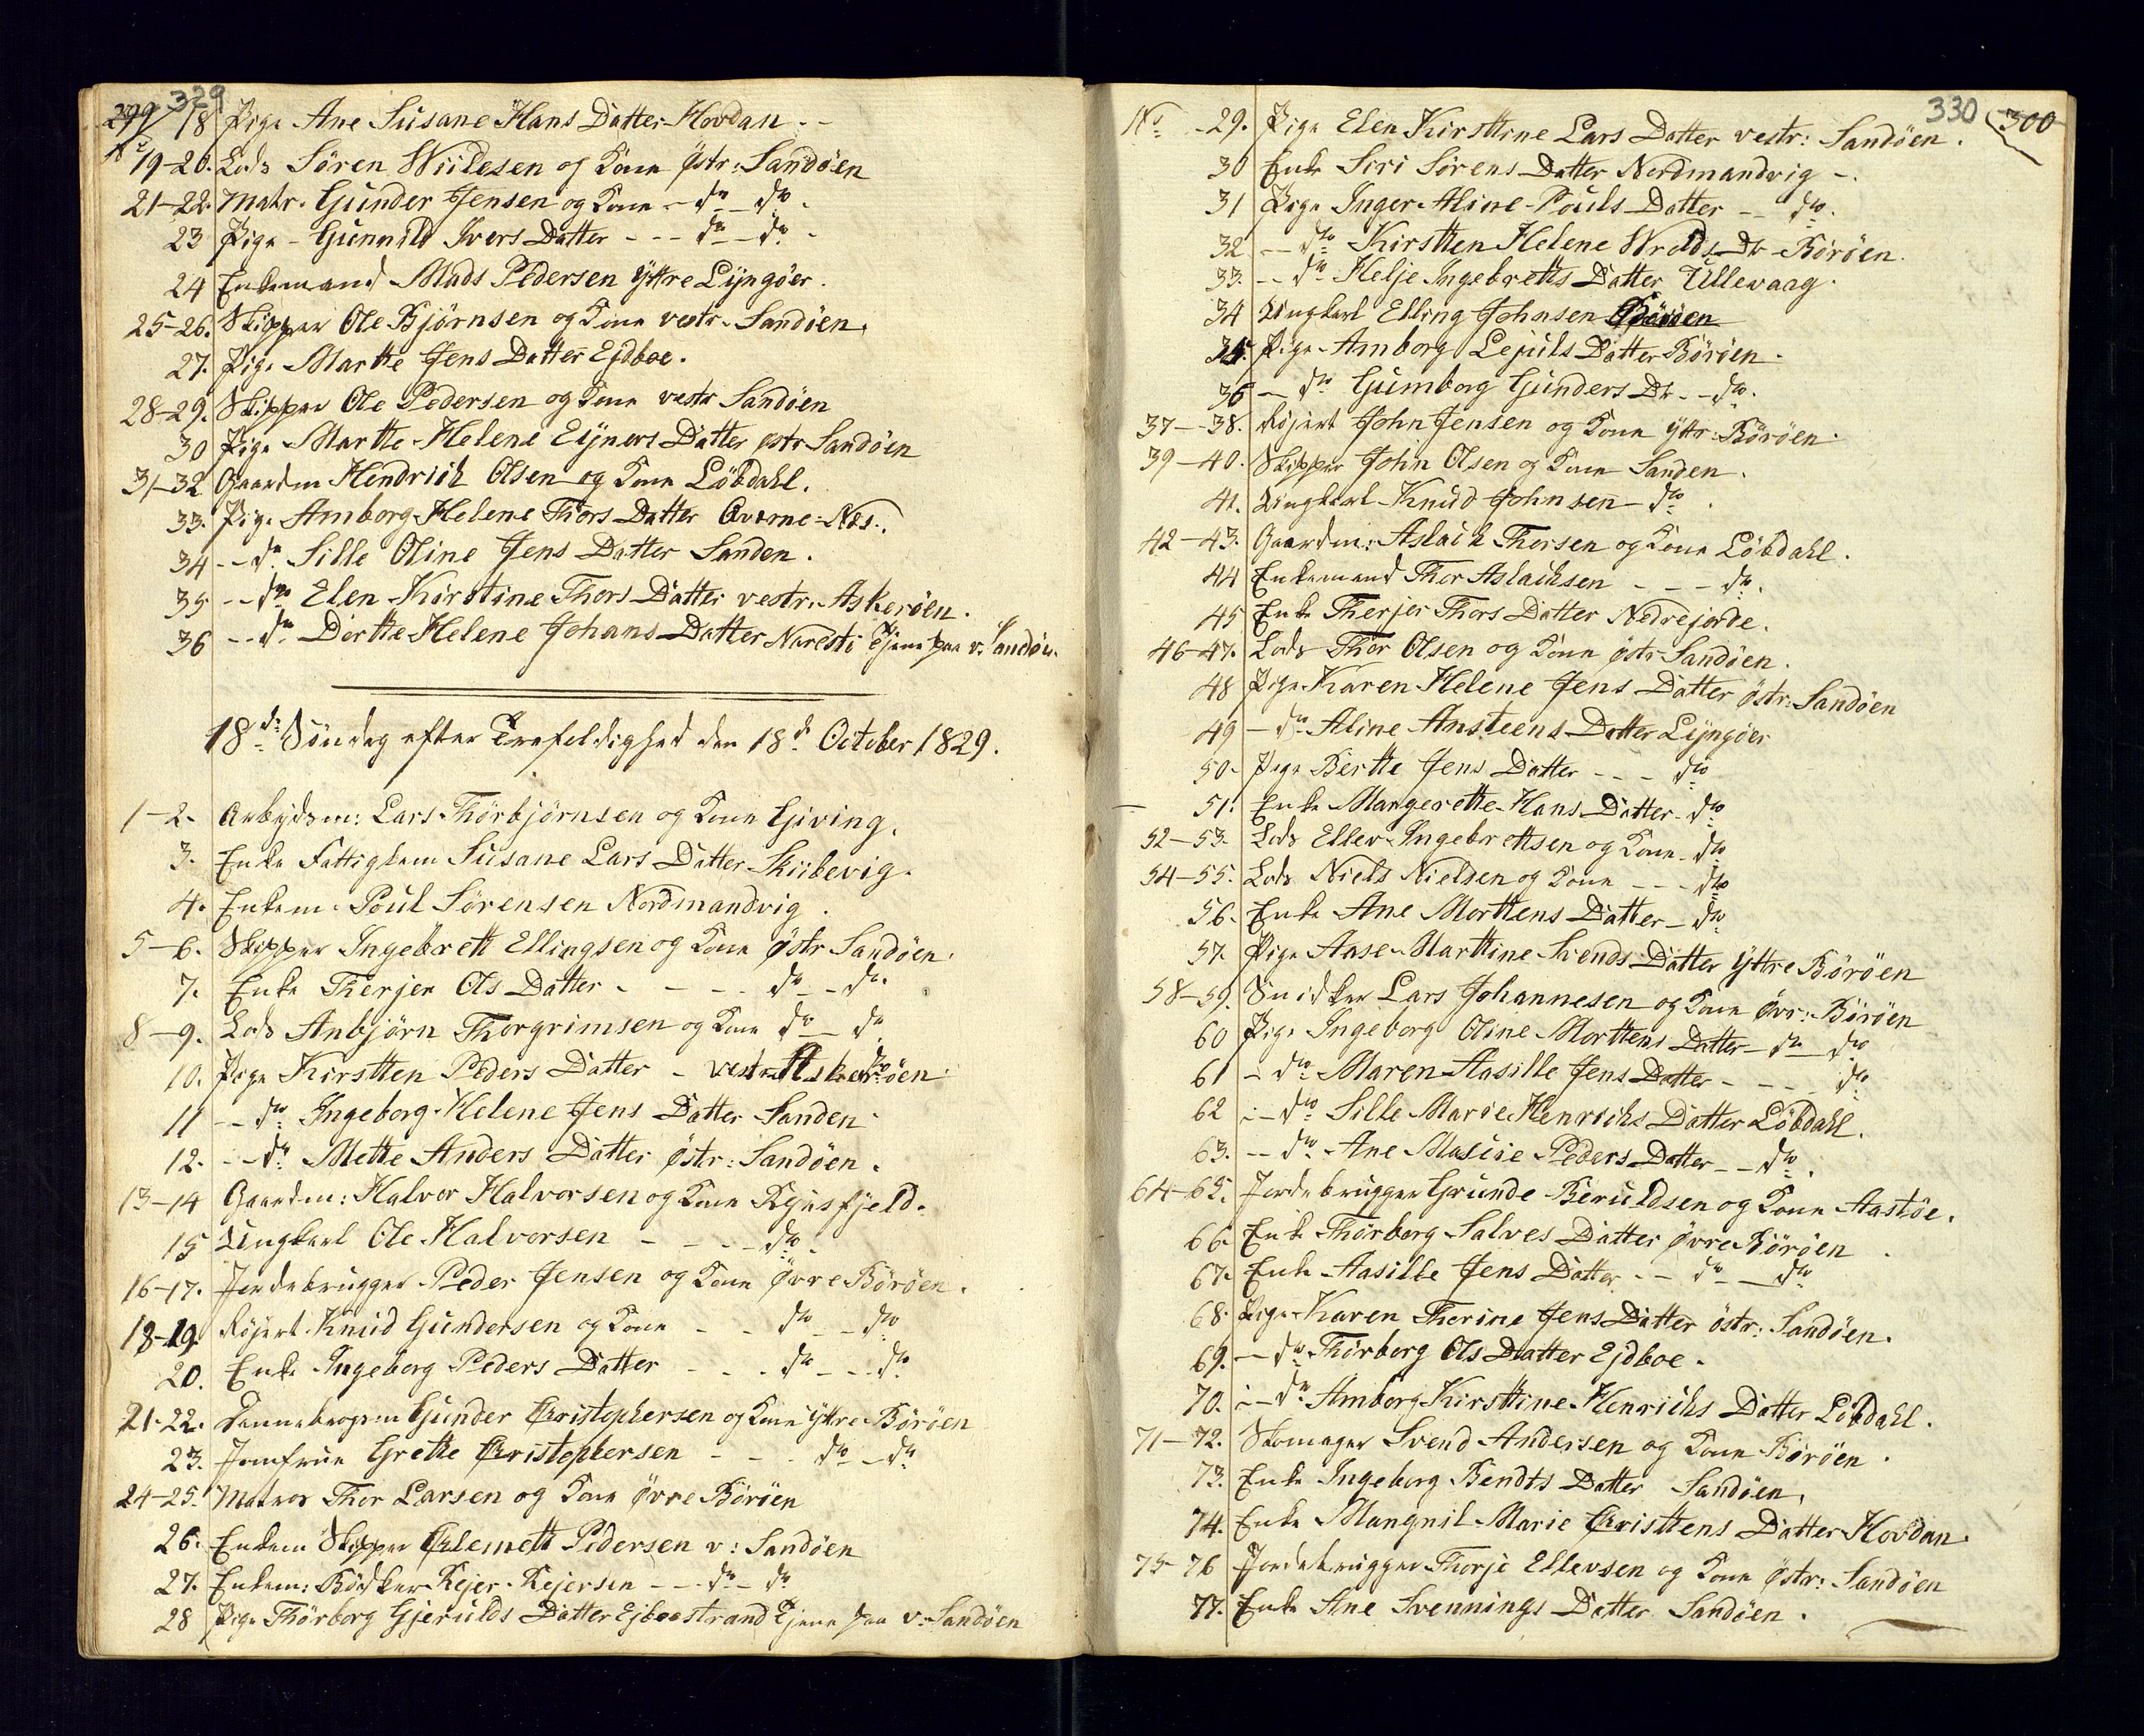 299 329
18 Pige Ane Susane Hans Datter Hovdan - -
No 19-20. Lods Sören Wiilesen og Kone Östr: Sandöen
21-22. Matr. Gunder Jensen og Kone - do - do -
23 Pige - Gunnild Ivers Datter - - - do - do -
24 Enkemand Mads Pedersen Yttre Lyngöer.
25-26. Skipper Ole Bjørnsen og Kone vestr. Sandöen.
27. Pige Marthe Jens Datter Ejdboe.
28-29. Skipper Ole Pedersen og Kone vestr Sandöen
30 Pige Marthe Helene Eyners Datter østr Sandöen
31-32 Gaardm Hendrich Olsen og Kone Löbdahl.
33. Pige Amborg Helene Thors Datter Qverne-Næs.
34 - - do Sille Oline Jens Datter Sanden.
35 - - do Elen Kirstine Thors Datter vestr. Askeröen.
36 - - do Dorthe Helene Johans Datter Naresti Tjene paa v. Sandöen.
18de Söndag efter Trefoldighed den 18de October 1829.
1-2. Arbejdsm: Lars Thörbjörnsen og Kone Giving.
3. Enke Fattiglem Susane Lars Datter Skiibevig.
4. Enkem Poul Sörensen Nordmandvig.
5-6. Skipper Ingebrett Ellingsen og Kone Östr Sandöen.
7. Enke Therjer Ols Datter - - - - do - do.
8-9. Lods Anbjörn Thorgrimsen og Kone do - do
10. Pige Kirstten Peders Datter - vestr Askeröen
11 - - do Ingeborg Helene Jens Datter Sanden
12. - - do Mette Anders Datter östr: Sandöen.
13-14 Gaardm: Halvor Halvorsen og Kone Rejusfjeld.
15 Ungkarl Ole Halvorsen - - - do -
16-17. Jordebrugger Peder Jensen og Kone Övre Böröen.
18-19 Röjert Knud Gundersen og Kone - - do - do
20. Enke Ingeborg Peders Datter - - - do - - do
21-22. Dannebrogsm Gunder Christophersen og Kone Yttre Böröen
23. Jomfrue Grethe Christophersen - - - do - do
24-25. Matros Thor Larsen og Kone Övre Böröen
26. Enkem Skipper Clemett Pedersen v: Sandöen
27. Enkem: Bödker Rejer Rejersen - - do - do
28 Pige Thörborg Gjerulds Datter Ejboestrand Tjene paa v. Sandöen
330 300
No 29. Pige Elen Kirsttine Lars Datter vestr: Sandöen.
30 Enke Siri Sörens Datter Nordmandvig -.
31 Pige Inger Aline Pouls Datter - - do.
32 - - do Kirstten Helene Wrolds Dr Böröen.
33. - - do Helje Ingebretts Datter Ullevaag.
34 Ungkarl Elling Johnsen Böröen
35. Pige Amborg Lejuls Datter Böröen.
36 - do Gumborg Gunders Dr. - - do.
37-38. Röjert John Jensen og Kone Yttr. Böröen.
39-40. Skipper John Olsen og Kone Sanden.
41. Ungkarl Knud Johnsen - do.
42-43. Gaardm: Aslach Thorsen og Kone Löbdahl.
44 Enkemand Thor Aslachsen - - - do.
45 Enke Therjer Thors Datter Nedrejorde.
46-47. Lods Thor Olsen og Kone östr Sandöen.
48 Pige Karen Helene Jens Datter östr: Sandöen
49 - do Aline Ansteens Datter Lyngöer
50. Pige Berthe Jens Datter - - - do
51. Enke Mangerethe Hans Datter do
52-53. Lods Ellev Ingebrettsen og Kone - do
54-55. Lods Niels Nielsen og Kone - - - do
56. Enke Ane Morttens Datter - do
57. Pige Aase Marttine Svends Datter Yttre Böröen
58-59. Snidker Lars Johannesen og Kone Övr: Böröen
60 Pige Ingeborg Oline Morttens Datter - do do
61 - do Maren Aasille Jens Datter - - - - do
62 - do Sille Marie Henrichs Datter Löbdahl.
63. - - do Ane Malise Peders Datter - - do.
64-65. Jordebrugger Grunde Beruldsen og Kone Aastöe.
66. Enke Thorborg Salves Datter Övre Böröen
67. Enke Aasille Jens Datter - - do - do
68. Pige Karen Therine Jens Datter östr: Sandöen.
69. - do Thörborg Ols Datter Ejdboe.
70. - do Amborg Kirsttine Henrichs Datter Löbdahl.
71-72. Skomager Svend Andersen og Kone Böröen.
73. Enke Ingeborg Bendts Datter Sandöen.
74. Enke Mangnil Marie Christtens Datter Hovdan.
75-76 Jordebrugger Thorje Ellevsen og Kone östr: Sandöen
77. Enke Ane Svennings Datter Sandöen.